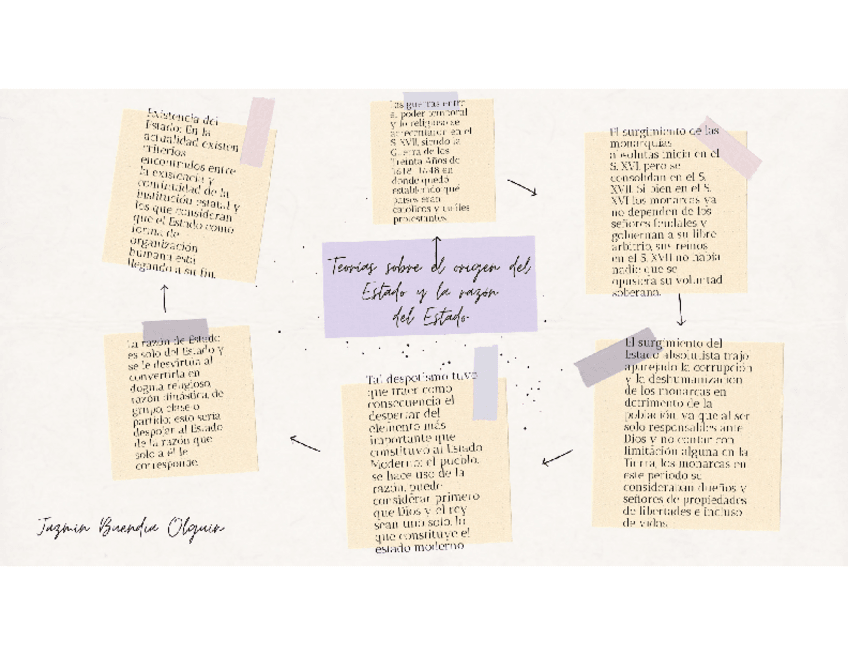 Teorías sobre el origen del
Estado y la razón
del Estado
Las guerras entre
el poder temporal
y lo religioso se
acrecientan en el
S. XVII, siendo la
Guerra de los
Treinta Años de
1618-1648 en
donde quedó
establecido qué
países eran
católicos y cuáles
protestantes.
El surgimiento de las
monarquías
absolutas inicia en el
S. XVI, pero se
consolidan en el S.
XVII. Si bien en el S.
XVI los monarcas ya
no dependen de los
señores feudales y
gobiernan a su libre
arbitrio, sus reinos
en el S. XVII no había
nadie que se
opusiera su voluntad
soberana.
El surgimiento del
Estado absolutista trajo
aparejado la corrupción
y la deshumanización
de los monarcas en
detrimento de la
población, ya que al ser
solo responsables ante
Dios y no contar con
limitación alguna en la
Tierra, los monarcas en
este periodo se
consideraban dueños y
señores de propiedades
de libertades e incluso
de vidas.
Tal despotismo tuvo
que traer como
consecuencia el
despertar del
elemento más
importante que
constituyó al Estado
Moderno: el pueblo,
se hace uso de la
razón, puede
considerar primero
que Dios y el rey
sean uno solo, lo
que constituye el
estado moderno
La razón de Estado
es solo del Estado y
se le desvirtúa al
convertirla en
dogma religioso,
razón dinástica, de
grupo, clase o
partido; esto sería
despojar al Estado
de la razón que
solo a él le
corresponde.
Existencia del
Estado: En la
actualidad existen
criterios
encontrados entre
la existencia y
continuidad de la
institución estatal y
los que consideran
que el Estado como
forma de
organización
humana está
llegando a su fin.
Jazmin Buendia Olguin